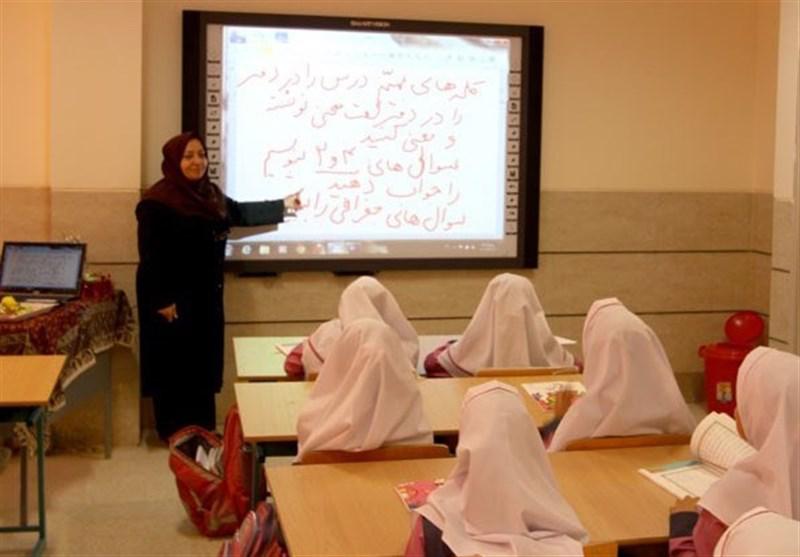 SMART VISION
کلمه های مهم درس را در دفتر
را در دفتر لغت معنی نوشته
و معنی کنید
سوال های ۳ و ۲ بنویسیم
را جواب دهید
سوال های جغرافی را